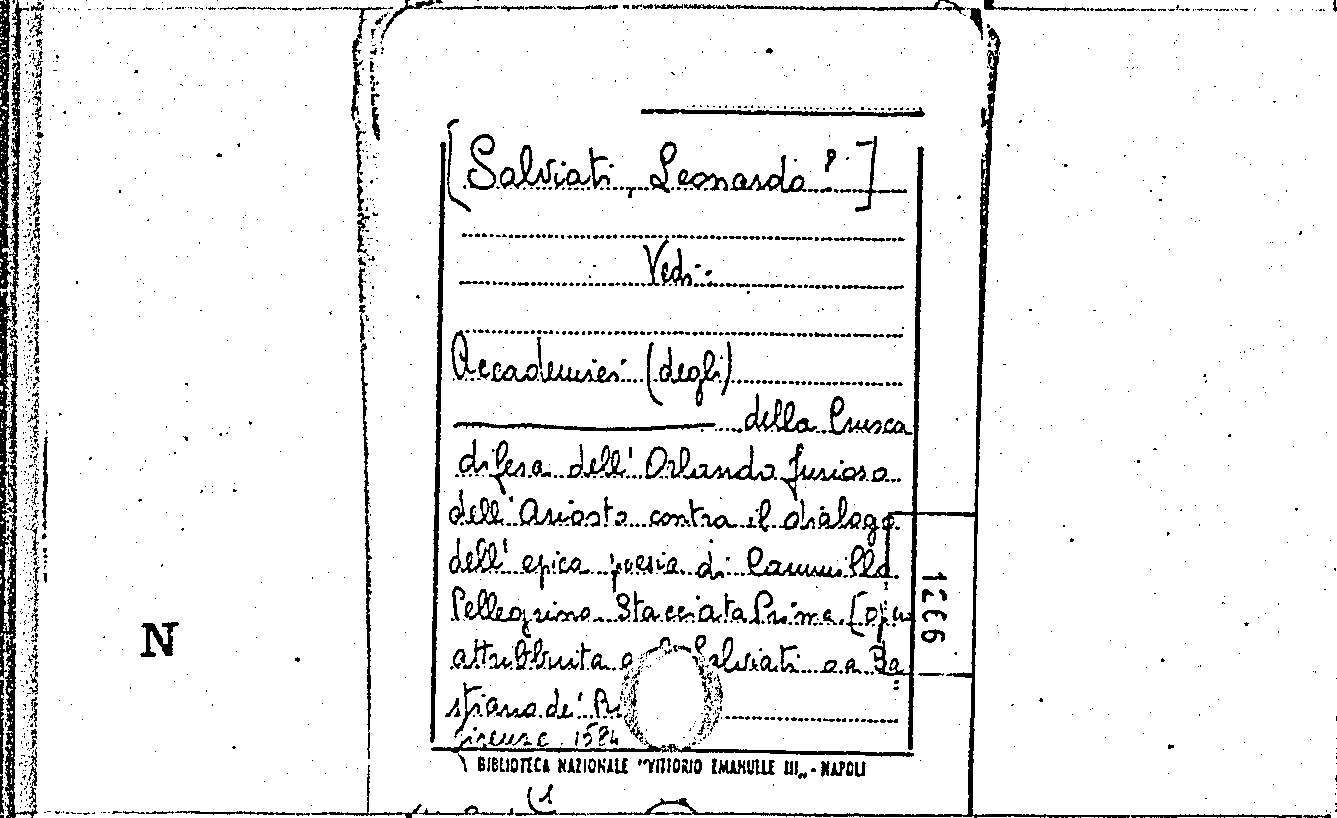 [Salviati, Leonardo?]
Vedi:
Accademici (degli)
della Crusca
difesa dell'Orlando furioso
dell'Ariosto contra il dialogo
dell'epica poesia di Cammillo
Pellegrino. Stacciata Prima. [opera
attribbuita a Salviati o a Ba
stiano de'
Firenze 1584
BIBLIOTECA NAZIONALE "VITTORIO EMANULLE III„ - NAPOLI
N